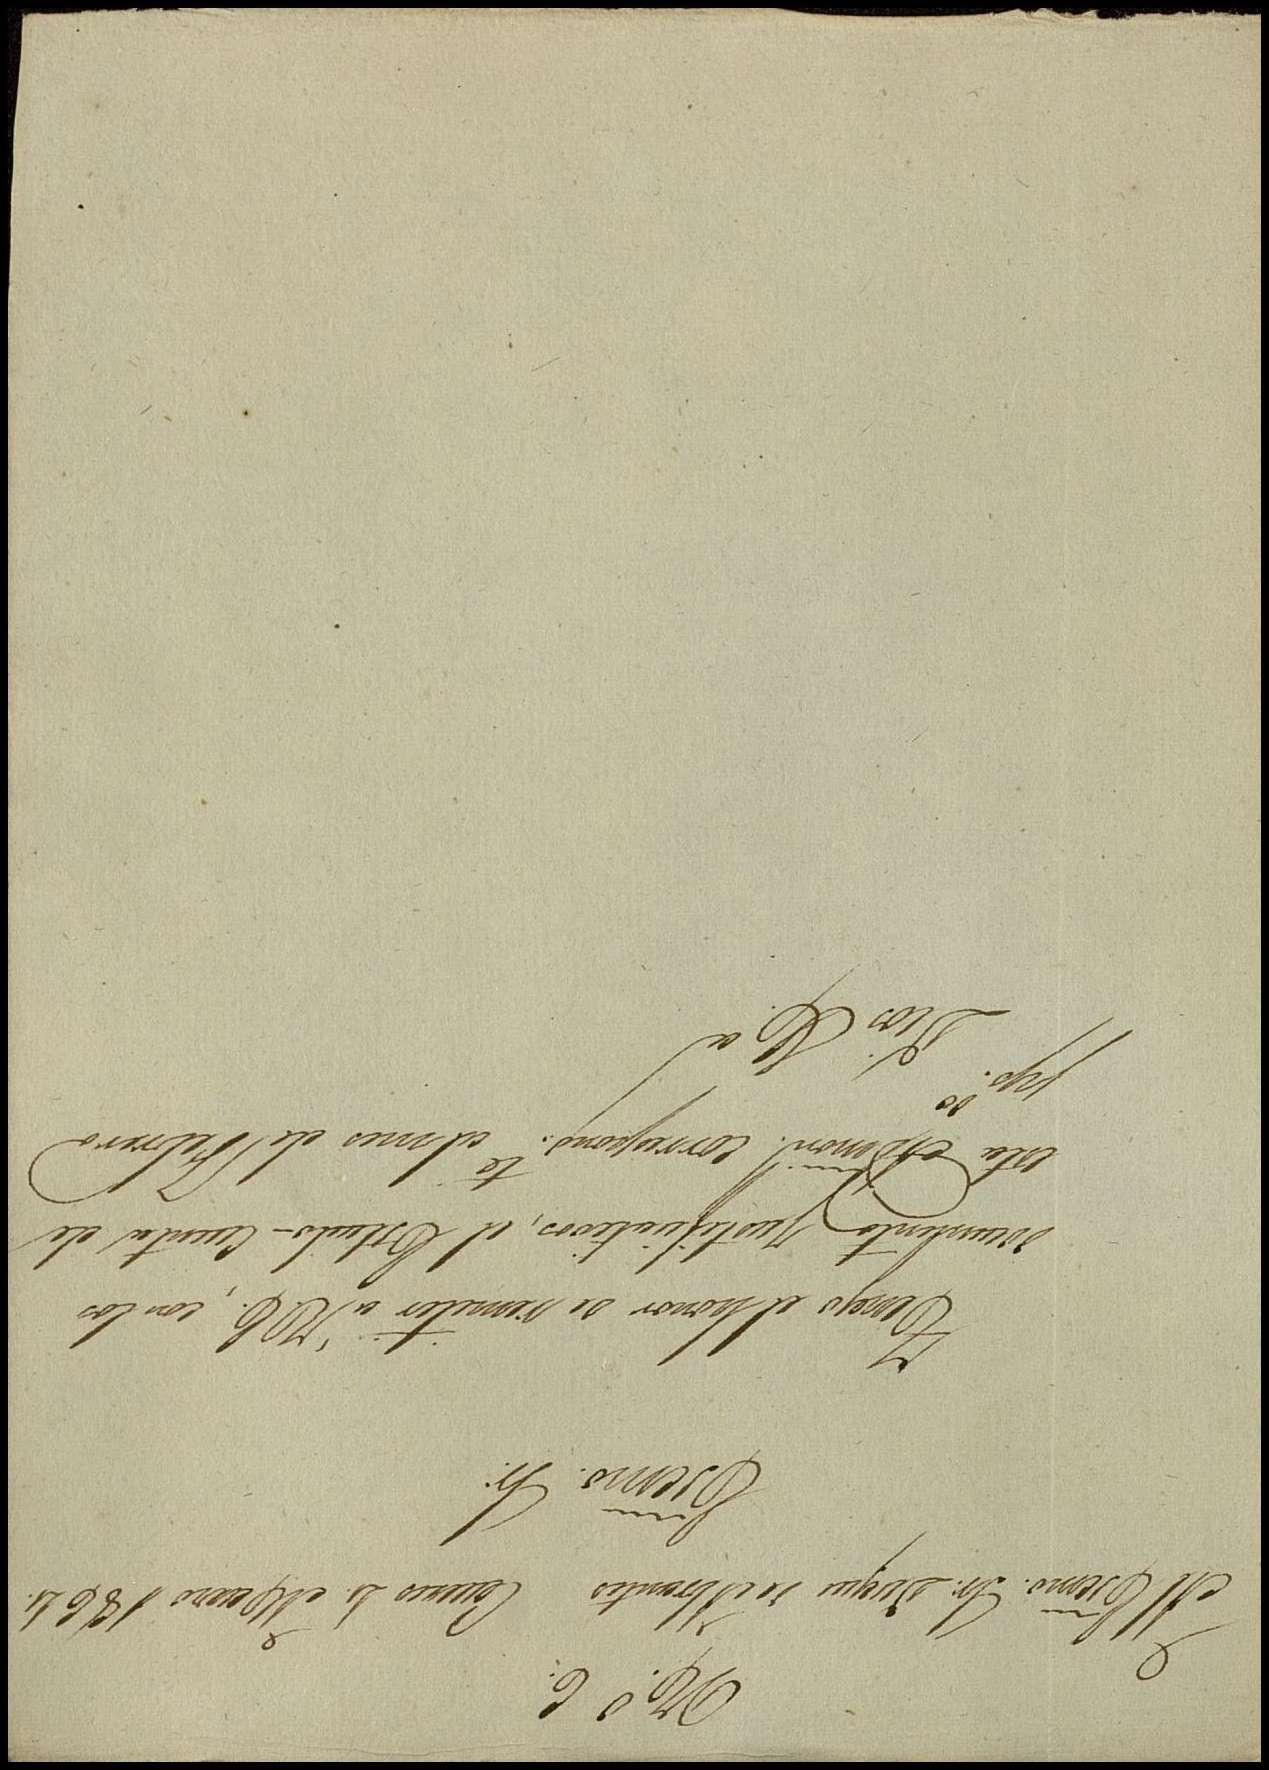 N.º 6.
Al Excmo. Sr. Duque de Abrantes Cuenca 2 Marzo 1864.
Excmo. Sr.
Tengo el honor de remitir a V.E., con los
documentos justificativos, el Estado-Cuenta de
esta Admon. correspond.te al mes de Febrero
ppdo.
Dios &.a